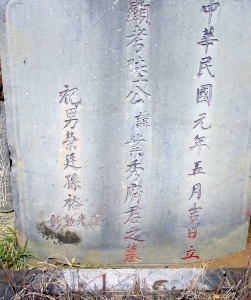 中華民國元年五月吉日立
顯考陸公諱業秀府君之墓
祀男榮廷孫裕
光勳